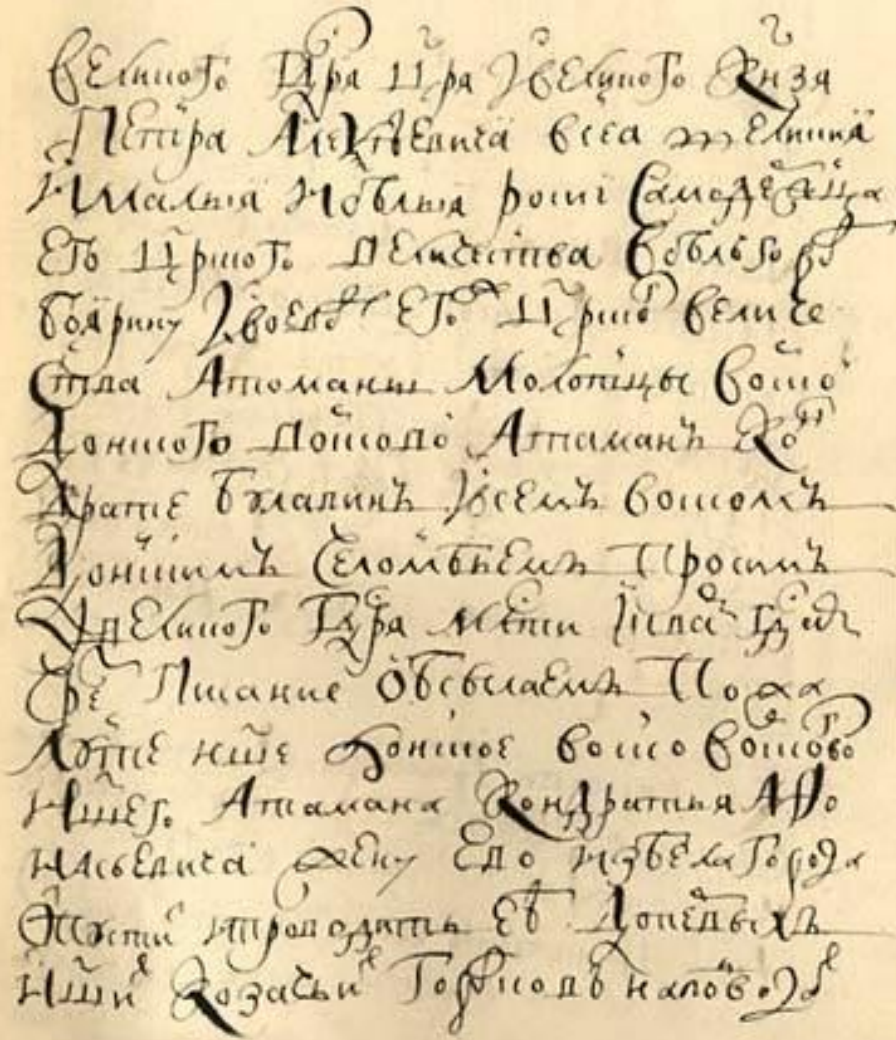 Великого Гдра Цря Ивеликого Кнзя
Петра Алеѯѣевича всеа великия
Ималыя Ибѣлыя росиі Самодержца
Его Црского величества Вбѣлъгород
Боярину Ивоеводе Его Црского величе
Ства Атоманы Молотцы Воиско
Донского воисково Атаманъ Кон
Дратеи Булавинъ Ивсемъ воискомъ
Донскимъ Челомбьемъ Просимъ
Увеликого Гдра Млсти
Писание Обсылаемъ Пожа
Луите нше донское воиско воисково
Ншего Атамана Кондратья Афо
насьевича жену Ево избела города
Отпустит ипроводить Ев Донедвыхъ
Нши Козачьи Городков